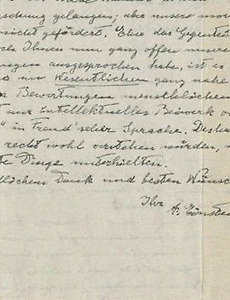 schung gelangen; aber unsere mor
nicht gefördert. Eher das Gegenteil
Ihnen nun ganz offen unsere
ausgesprochen habe, ist es
wir Wesentlichen ganz nahe
Bewertungen menschlichen
nur intellektuelles Beiwerk o
" in Freud'scher Sprache. Desha
recht wohl verstehen würden, w
te Dinge unterhielten.
dlichem Dank und besten Wünsc
Ihr A. Einstein